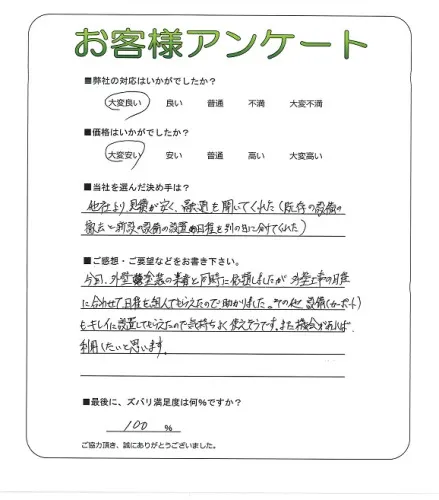 お客様アンケート
■弊社の対応はいかがでしたか？
大変良い 良い 普通 不満 大変不満
■価格はいかがでしたか？
大変安い 安い 普通 高い 大変高い
■当社を選んだ決め手は？
他社より見積が安く、融通を聞いてくれた(既存の設備の
撤去と新設の設備の設置の日程を別の日に分けてくれた)
■ご感想・ご要望などをお書き下さい。
今回、外壁塗装の業者と同時に依頼しましたが 外壁工事の日程
に合わせて日程を組んでもらえたので助かりました。その他 設備(カーポート)
もキレイに設置してもらえたので気持ちよく使えそうです。また機会があれば、
利用したいと思います。
■最後に、ズバリ満足度は何%ですか？
100 %
ご協力頂き、誠にありがとうございました。